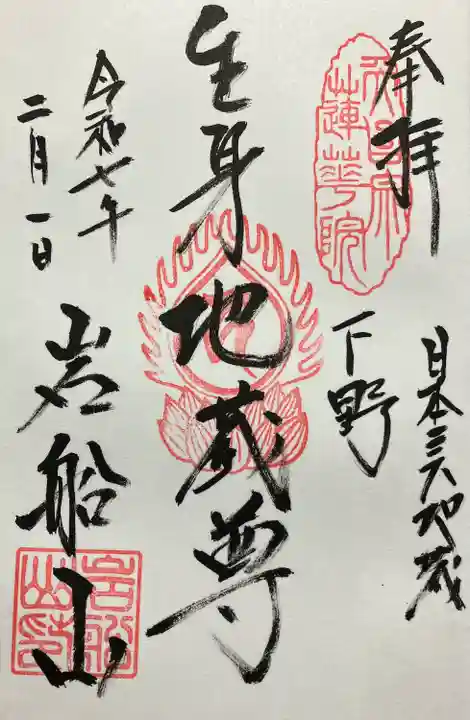 奉拝
日本三大地蔵
下野
蓮華院
生身地蔵尊
令和七年
二月一日
岩船山
岩船山印